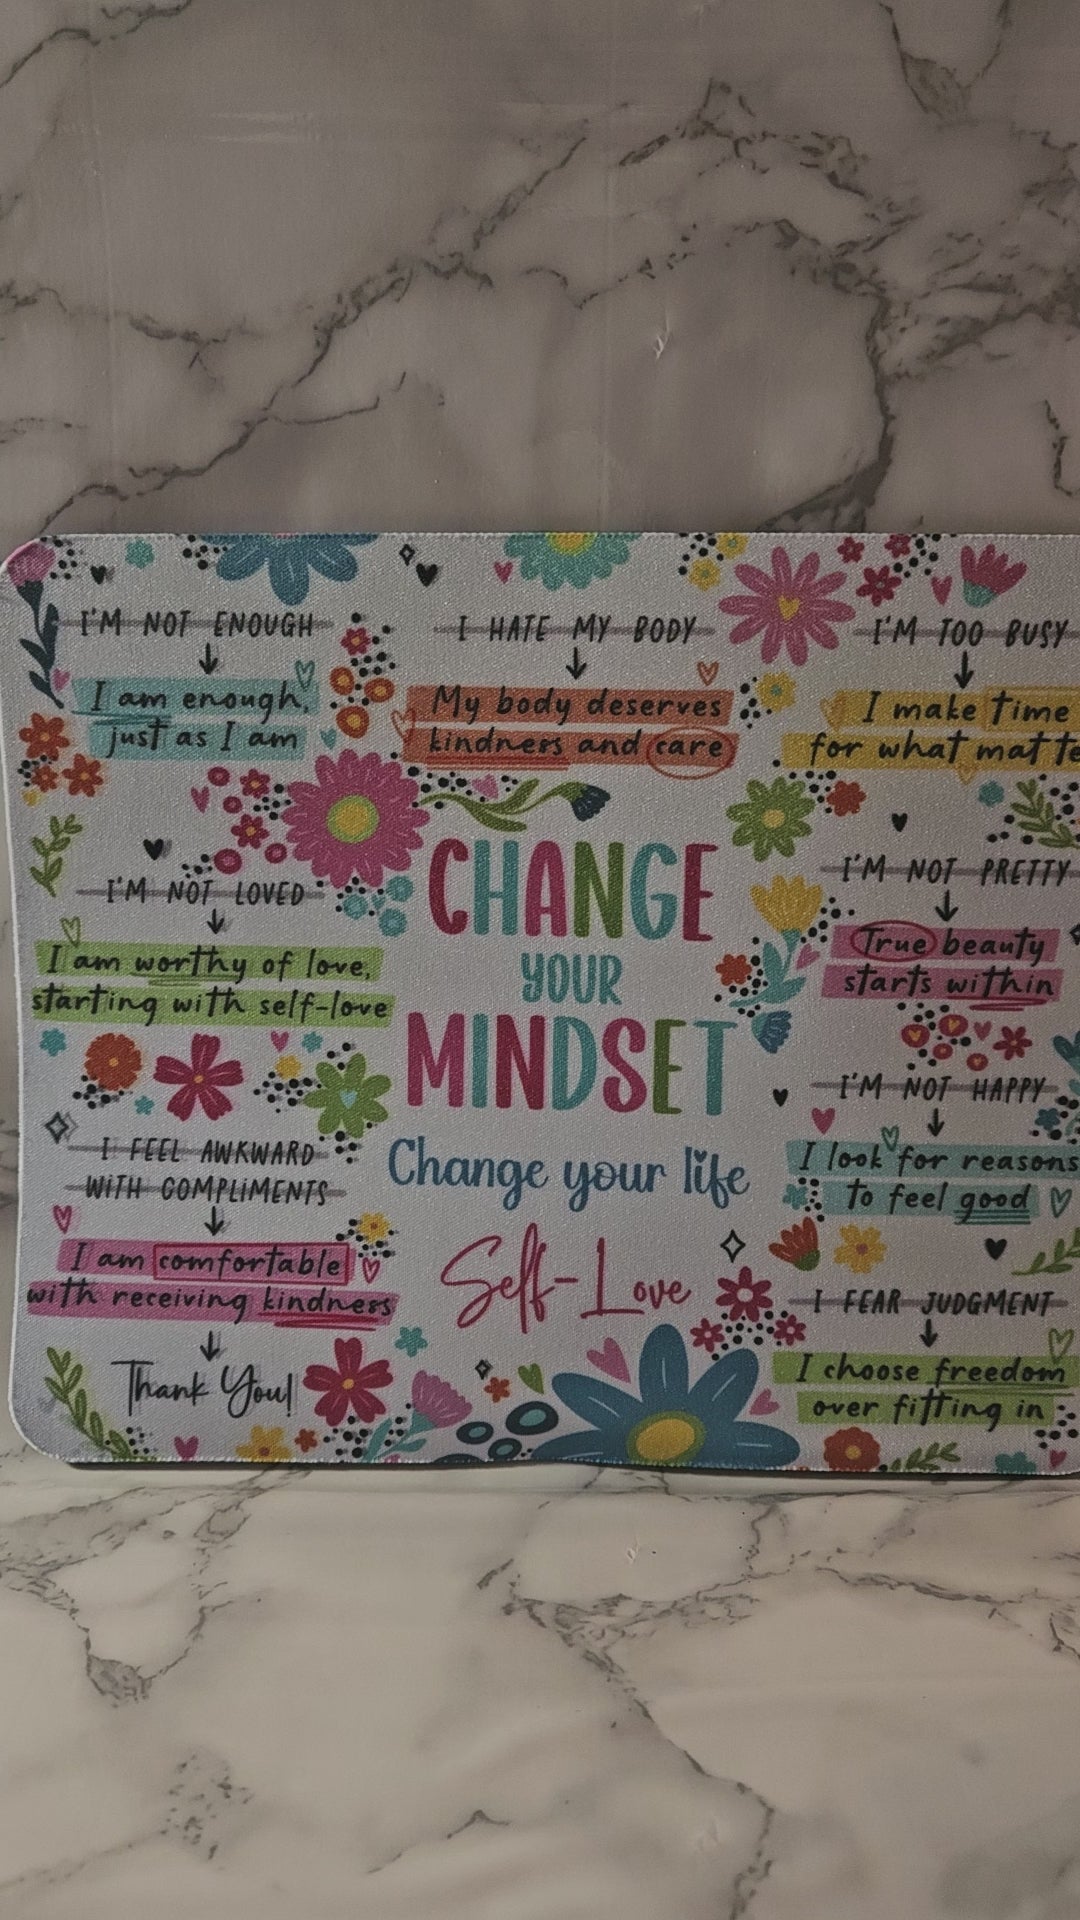 I'M NOT ENOUGH
I am enough,
just as I am
I HATE MY BODY
My body deserves
kindness and care
I'M TOO BUSY
I make time
for what matte
I'M NOT LOVED
I am worthy of love,
starting with self-love
CHANGE
YOUR
MINDSET
Change your life
Self-Love
I'M NOT PRETTY
True beauty
starts within
I'M NOT HAPPY
I look for reasons
to feel good
I FEEL AWKWARD
WITH COMPLIMENTS
I am comfortable
with receiving kindness
Thank You!
I FEAR JUDGMENT
I choose freedom
over fitting in